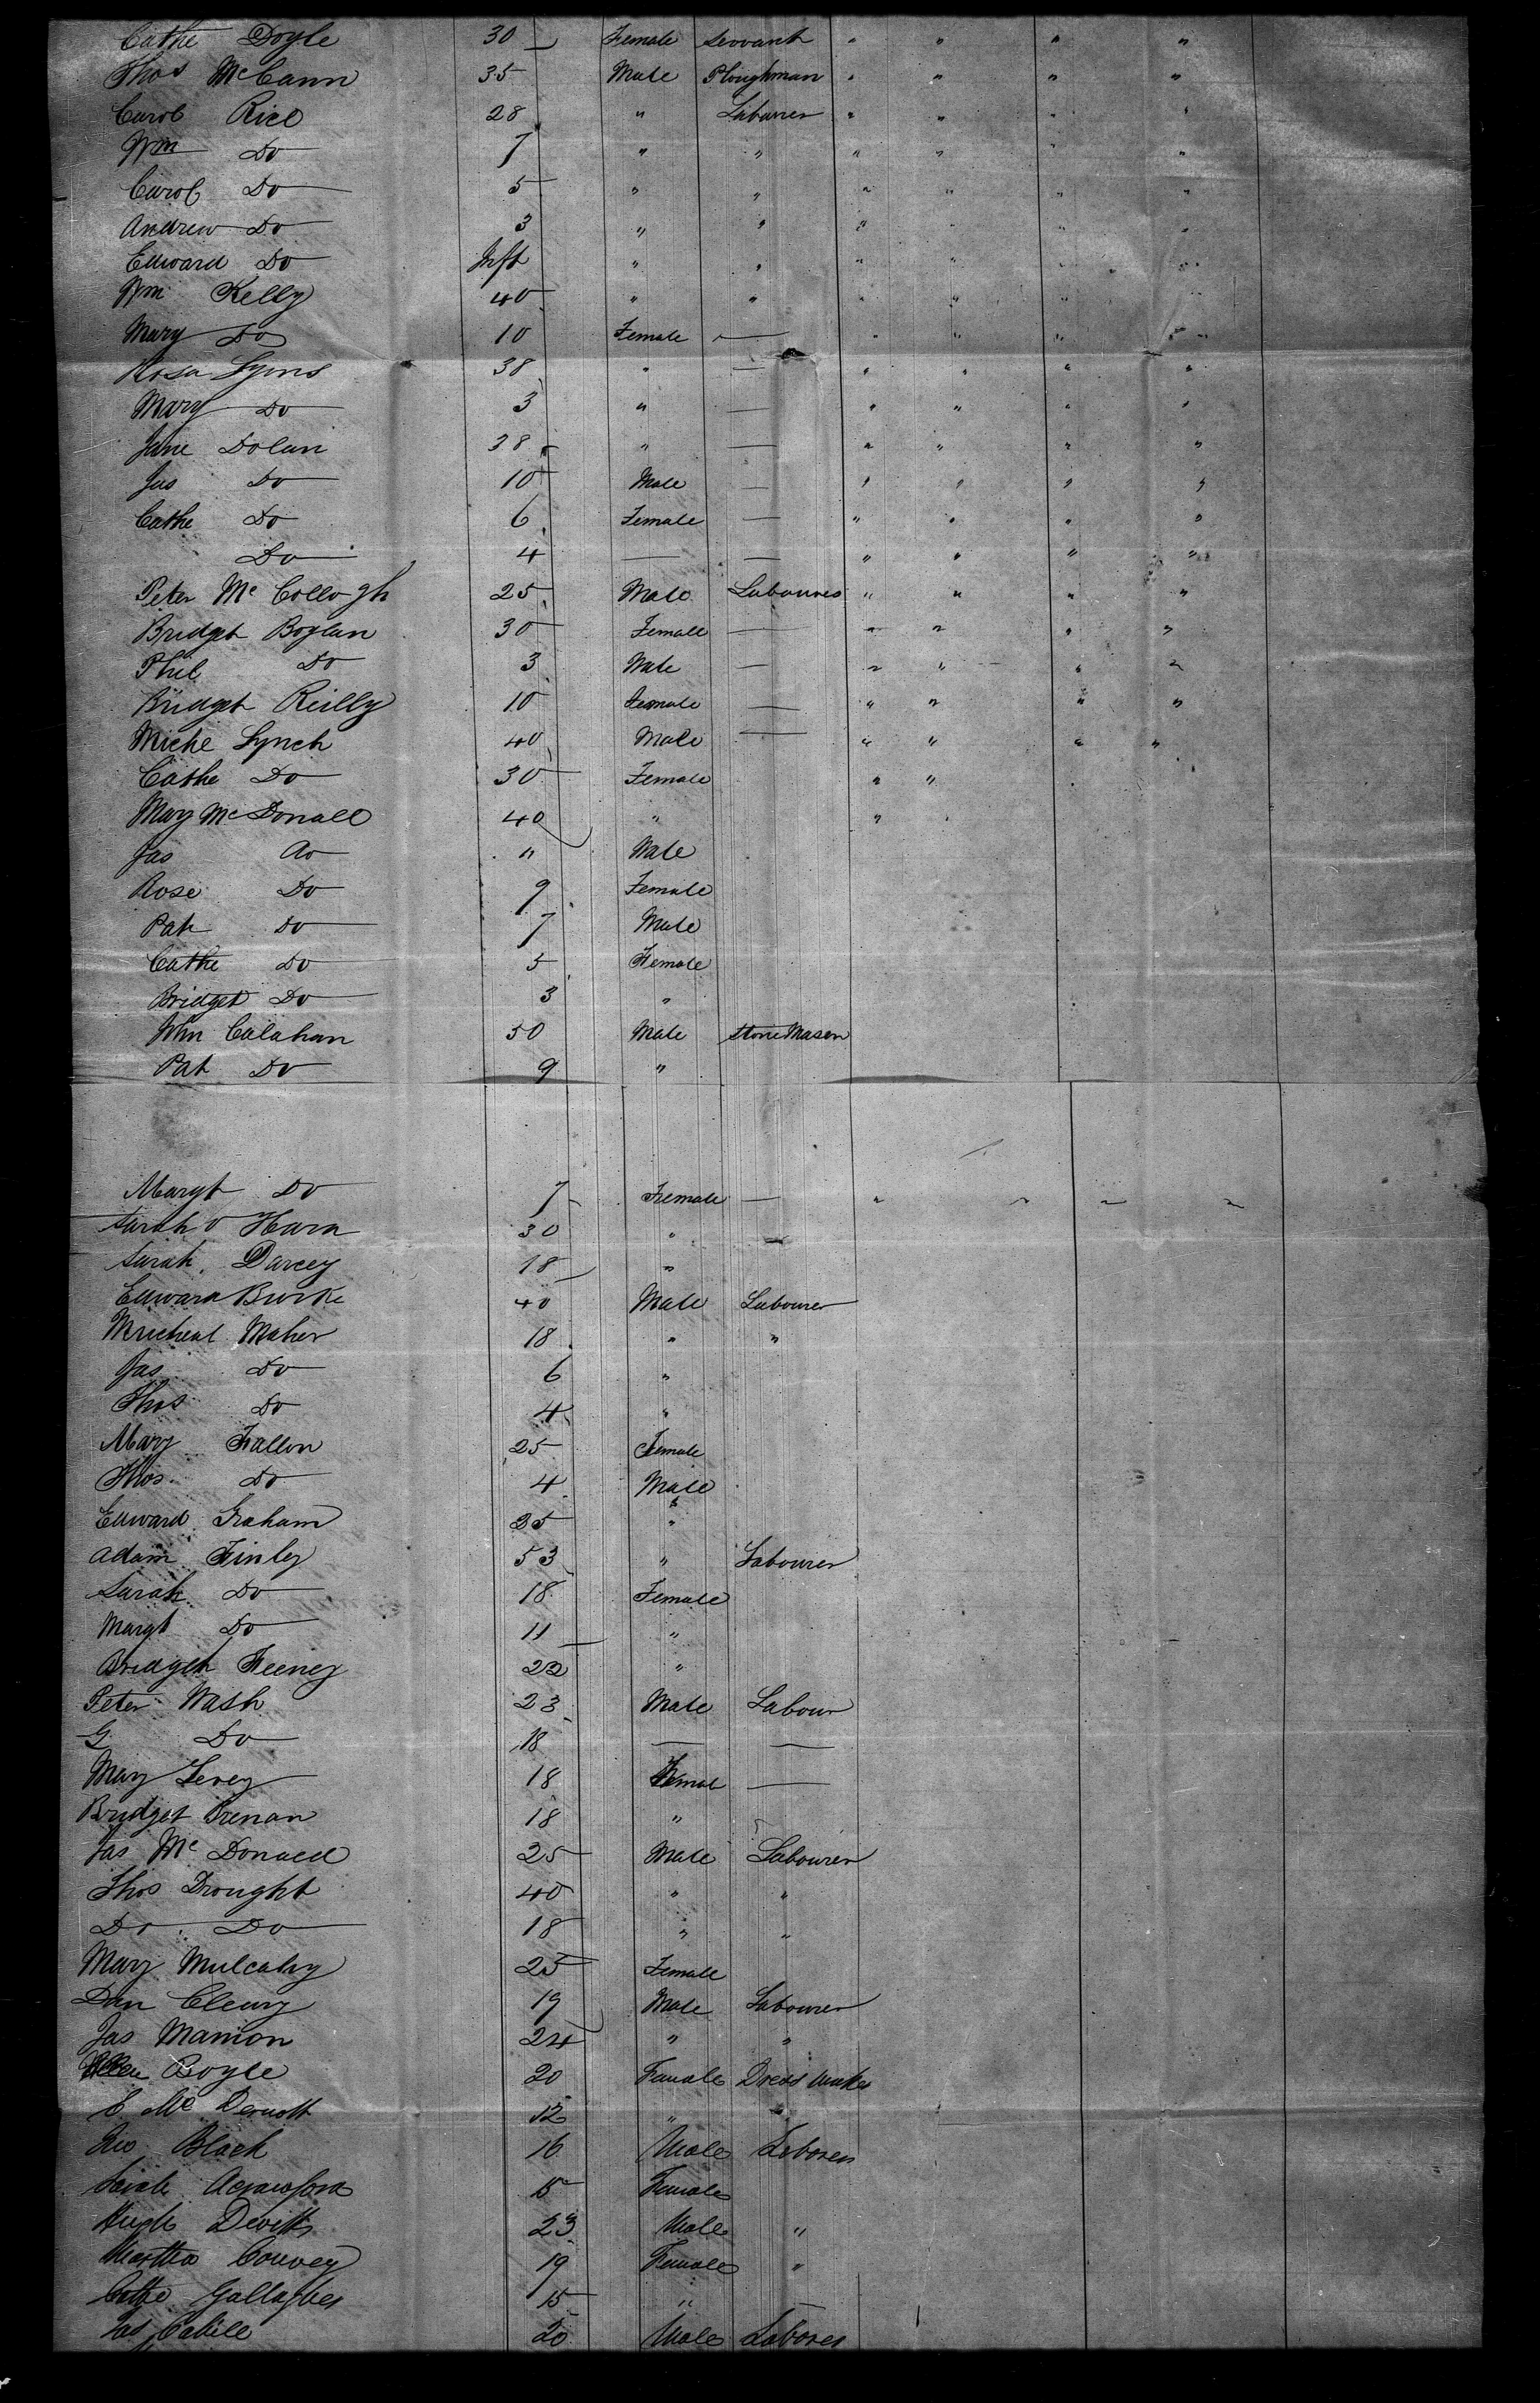 Cathe Doyle 30 Female Servant " " " "
Thos McCann 35 Male Ploughman " " " "
Carol Rice 28 " Labourer " " " "
Wm Do 7 " " " " " "
Carol Do 5 " " " " " "
Andrew Do 3 " " " " " "
Edward Do Inft " " " " " "
Wm Kelly 40 " " " " " "
Mary Do 10 Female — " " " "
Rosa Lyons 38 " — " " " "
Mary Do 3 " — " " " "
Jane Dolan 38 " — " " " "
Jas Do 10 Male — " " " "
Cathe Do 6 Female — " " " "
Do 4 — — " " " "
Peter Mc Collogh 25 Male Labourer " " " "
Bridget Boylan 30 Female — " " " "
Phil Do 3 Male — " " " "
Bridget Reilly 10 Female — " " " "
Miche Lynch 40 Male — " " " "
Cathe Do 30 Female " "
Mary McDonall 40 " "
Jas Do " Male
Rose Do 9 Female
Pat Do 7 Male
Cathe Do 5 Female
Bridget Do 3 "
John Calahan 50 Male Stone Mason
Pat Do 9 "
Margt Do 7 Female — " " " "
Sarah O Hara 30 "
Sarah Darcey 18 "
Edward Burke 40 Male Labourer
Micheal Maher 18 " "
Jas Do 6 "
Thos Do 4 "
Mary Fallon 25 Female
Thos Do 4 Male
Edward Graham 35 "
Adam Finley 53 " Labourer
Sarah Do 18 Female
Margt Do 11 "
Bridget Feeney 22 "
Peter Nash 23 Male Labour
G Do 18 — —
Mary Levey 18 Femal —
Bridget Brenan 18 "
Jas Mc Donald 25 Male Labourer
Thos Drought 40 " "
Do Do 18 " "
Mary Mulcahy 25 Female
Dan Cleary 19 Male Labourer
Jas Manion 24 " "
Ellen Boyle 20 Female Dress Maker
C Mc Dermott 12 "
Black 16 Male Laborer
Sarah 15 Female
Hugh Devitt 23 Male "
Martha Convey 19 Female "
Cathe Gallagher 15 " —
Jas Cahill 20 Male Laborer